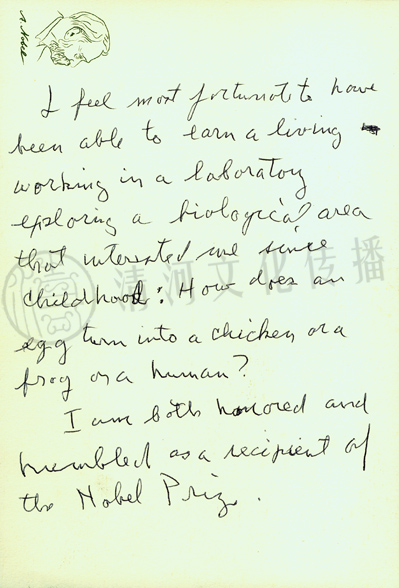 A. Nobel
I feel most fortunate to have
been able to earn a living
working in a laboratory
exploring a biological area
that interested me since
childhood: How does an
egg turn into a chicken or a
frog or a human?
I am both honored and
humbled as a recipient of
the Nobel Prize.
清河文化传播